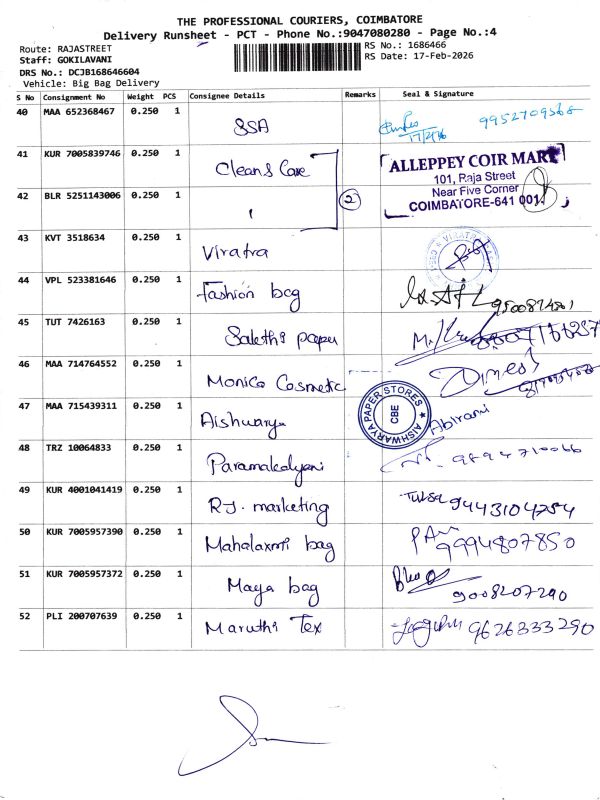 THE PROFESSIONAL COURIERS, COIMBATORE
Delivery Runsheet - PCT - Phone No.:9047080280 - Page No.:4
Route: RAJASTREET
RS No.: 1686466
Staff: GOKILAVANI
RS Date: 17-Feb-2026
DRS No.: DCJB168646604
Vehicle: Big Bag Delivery
S No Consignment No Weight PCS Consignee Details Remarks Seal & Signature
40 MAA 652368467 0.250 1 SSA 9952709568
17/2/26
41 KUR 7005839746 0.250 1 Clean & Care
ALLEPPEY COIR MART
101, Raja Street
Near Five Corner
COIMBATORE-641 001
42 BLR 5251143006 0.250 1 2
43 KVT 3518634 0.250 1 Viratra
VIRATRA
44 VPL 523381646 0.250 1 Fashion bag
45 TUT 7426163 0.250 1 Saleths paper
46 MAA 714764552 0.250 1 Monica Cosmetic Dinesh
47 MAA 715439311 0.250 1 Aishwarya
AISHWARYA PAPER STORES
CBE
Abirami
48 TRZ 10064833 0.250 1 Paramakalyani 9894710066
49 KUR 4001041419 0.250 1 R.J. marketing Tulsi 9443104254
50 KUR 7005957390 0.250 1 Mahalaxmi bag 9994807850
51 KUR 7005957372 0.250 1 Maya bag 9008207290
52 PLI 200707639 0.250 1 Maruthi Tex 9626333290